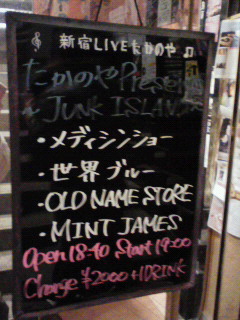 新宿LIVEたかのや
たかのやPresents
JUNK ISLAND
・メディシンショー
・世界ブルー
・OLD NAME STORE
・MINT JAMES
Open 18:40 Start 19:00
Charge ¥2000+1DRINK